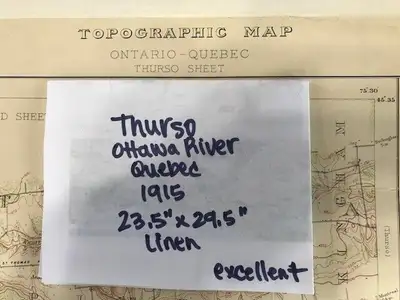 TOPOGRAPHIC MAP
ONTARIO-QUEBEC
THURSO SHEET
75°30'
45°35'
D SHEET
Thurso
Ottawa River
Quebec
1915
23.5" x 29.5"
Linen
excellent
(Thurso)